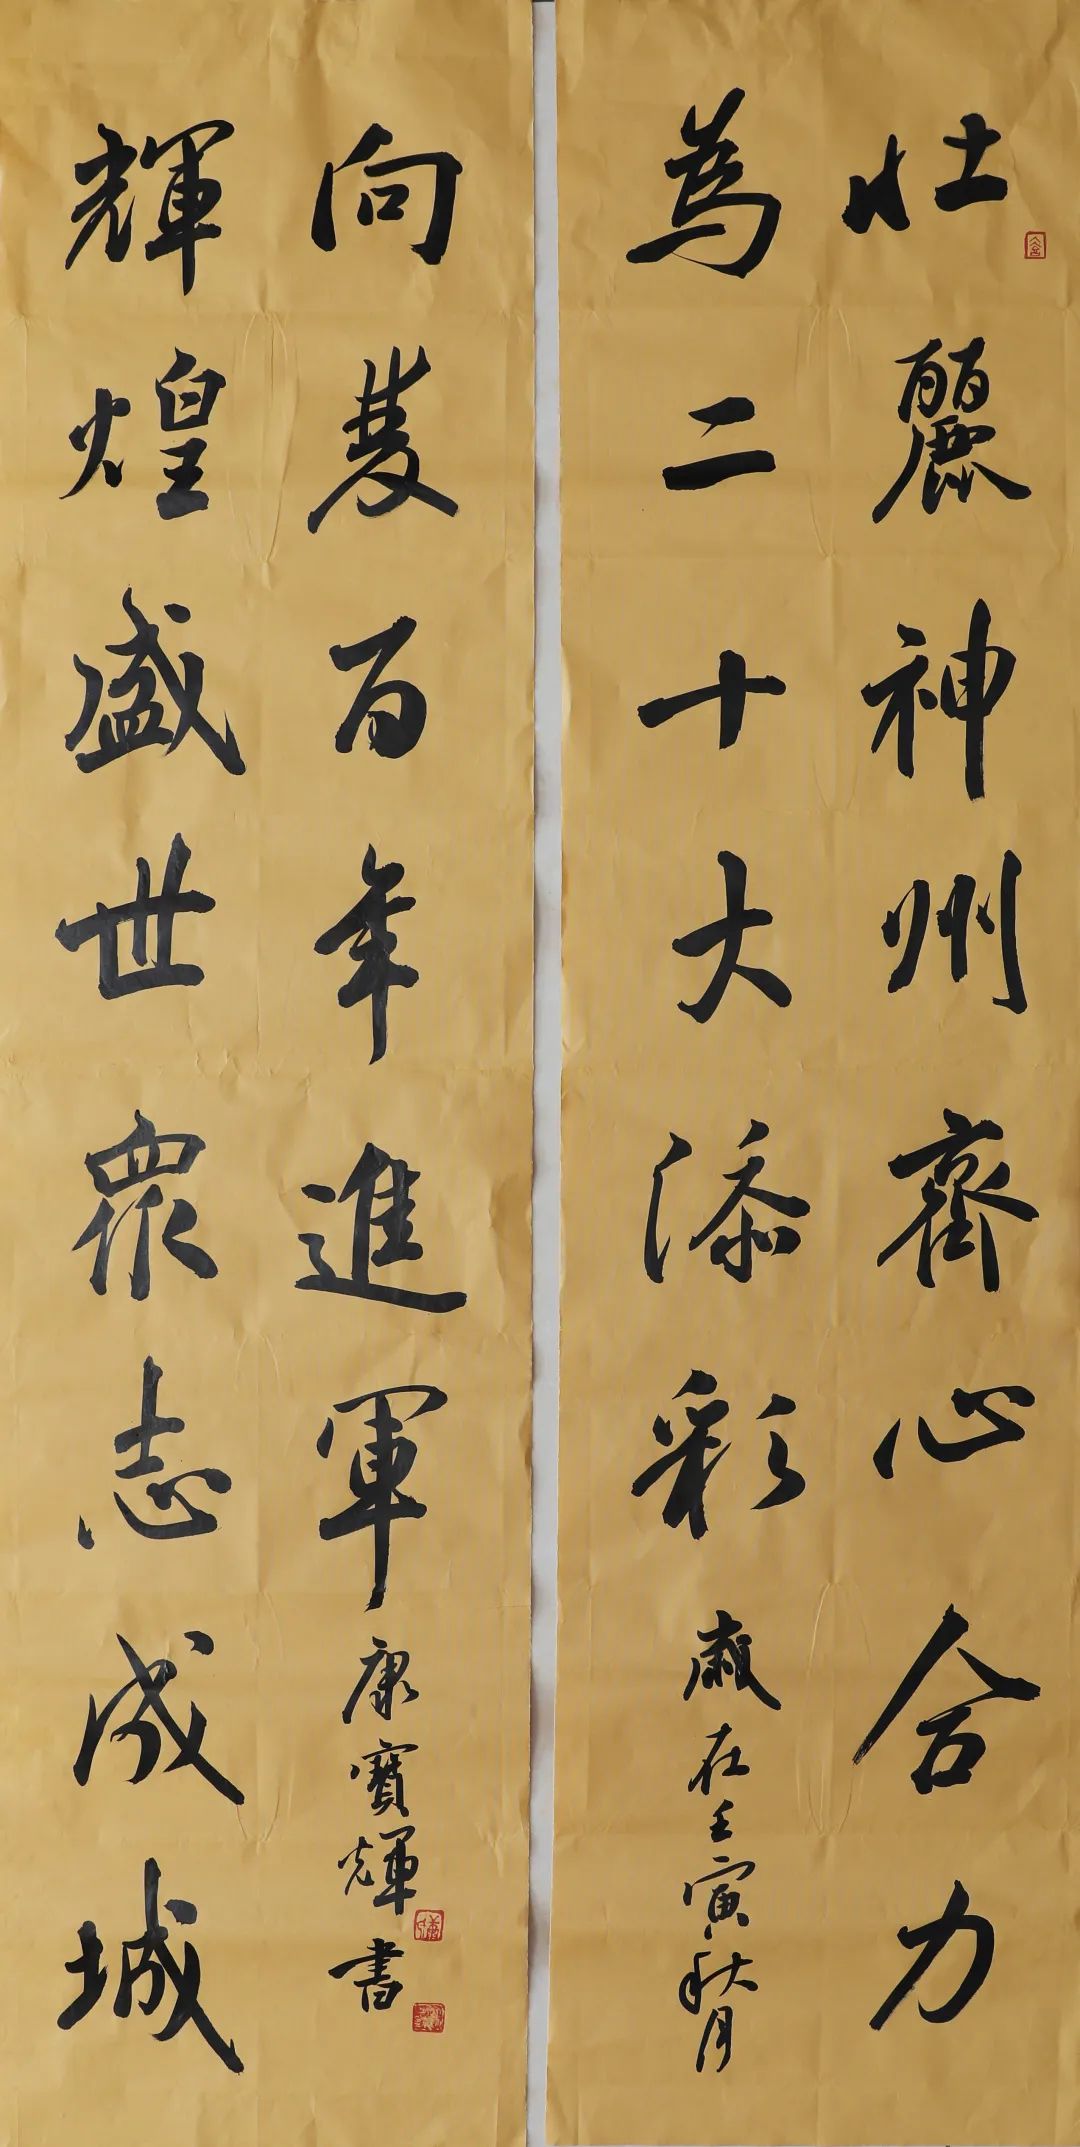 壮麗神州齊心合力
為二十大添彩
歲在壬寅秋月
輝煌盛世眾志成城
向雙百年進軍
康寶輝書